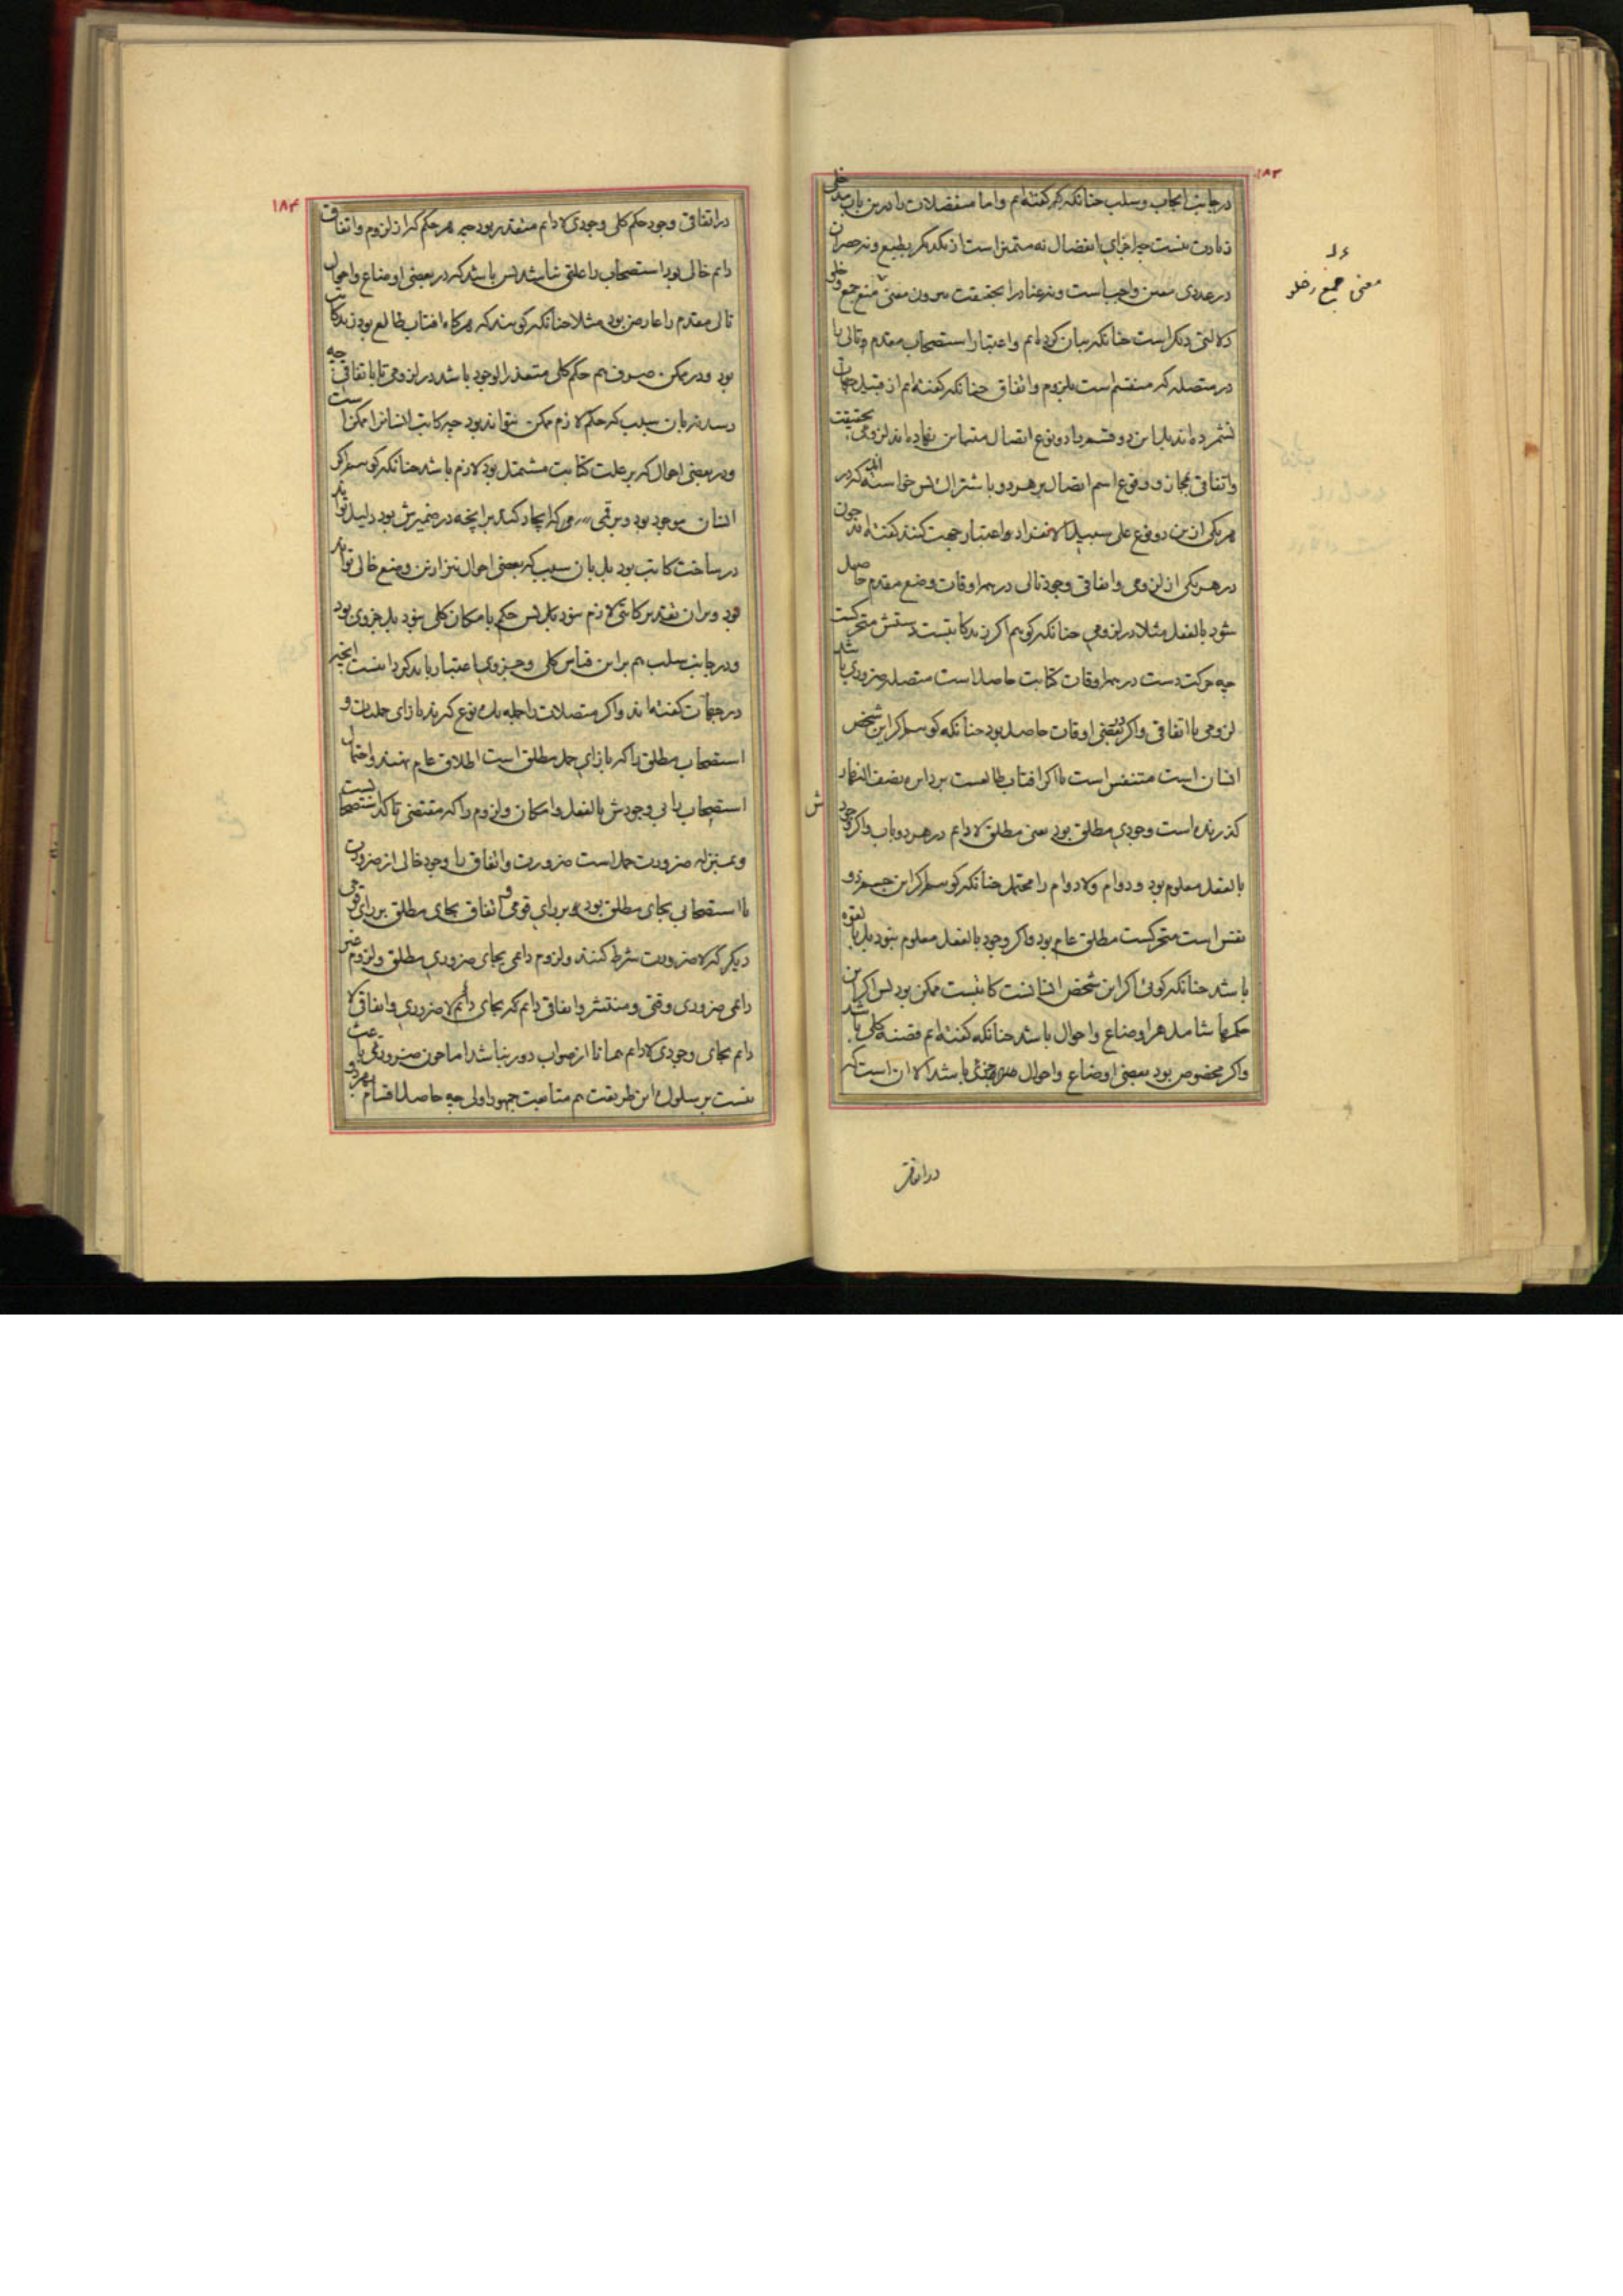 ۱۸۳
در جانب ایجاب و سلب چنانکه گفته‌ایم و اما منفصلات را درین باب مدخلی
زیادت نیست چه اجزای انفصال نه متمیز است از یکدیگر بطبع و نه حصرش
در عددی معین واجبست و نه عناد را بحقیقت بیرون معنی منع جمع و خلو
دلالتی دیگر است چنانکه بیان کرده‌ایم و اعتبار استصحاب مقدم و تالی را
در متصله که منقسم است بلزوم و اتفاق چنانکه گفته‌ایم از قبیل جهات
نشمرده‌اند بل این دو قسم را دو نوع اتصال متباین نهاده‌اند لزومی بحقیقت
و اتفاقی بمجاز و وقوع اسم اتصال بر هر دو باشتراک پس خواسته‌اند که در
هر یکی ازین دو نوع علی سبیل الانفراد و اعتبار جهت کنند گفته‌اند چون
در هر یکی از لزومی و اتفاقی وجود تالی در همه اوقات وضع مقدم حاصل
شود بالفعل مثلا در لزومی چنانکه گوییم اگر زید کاتبست دستش متحرکست
چه حرکت دست در همه اوقات کتابت حاصل است متصله ضروری باشد
لزومی یا اتفاقی و اگر در بعضی اوقات حاصل بود چنانکه گوییم اگر این شخص
انسان است متنفس است یا اگر افتاب طالعست بر دایره نصف النهار
گذرنده است وجودی مطلق بود یعنی مطلق لا دایم در هر دو باب و اگر وجود
بالفعل معلوم بود و دوام و لا دوام را محتمل چنانکه گوییم اگر این جسم ذو
نفس است متحرکست مطلق عام بود و اگر وجود بالفعل معلوم نبود بل بالقوه
باشد چنانکه گوئی اگر این شخص انسانست کاتبست ممکن بود پس اگر این
حکمها شامل همه اوضاع و احوال باشد چنانکه گفته‌ایم قضیه کلی باشد
و اگر مخصوص بود ببعضی اوضاع و احوال جزئی باشد الا ان است که
معنی جمع و خلو
ش
در اتفاقی
۱۸۴
در اتفاقی وجود حکم کلی وجودی لا دایم متعذر بود چه هر حکم که از لزوم و اتفاق
دایم خالی بود استصحاب را علتی نباشد پس باشد که در بعضی اوضاع و احوال
تالی مقدم را عارض بود مثلا چنانکه گویند که هرگاه افتاب طالع بود زید کاتب
بود و در ممکن صرف هم حکم کلی متعذر الوجود باشد در لزومی تا باتفاقی چه
رسد نه بان سبب که حکم لازم ممکن نتواند بود چه کاتب انسانرا ممکن است
و در بعضی احوال که بر علت کتابت مشتمل بود لازم باشد چنانکه گوییم اگر
انسان موجود بود و بر قمی که ایجاد کند بر انچه در ضمیرش بود دلیل تواند
در ساخت کاتب بود بل بان سبب که بعضی احوال نیز ازین وضع خالی تواند
بود و بر ان تقدیر کاتبی لازم نبود بل پس حکم بامکان کلی نبود بل جزوی بود
و در جانب سلب هم برین قیاس کلی و جزوی اعتبار باید کرد اینست انچه
در جهات گفته‌اند و اگر متصلات را جمله یک نوع گیرند بازای حملیات و
استصحاب مطلق را که بازای حمل مطلق است اطلاق عام نهند و احتمال
استصحاب را بی وجودش بالفعل و امکان و لزوم را که مقتضی تاکد استصحابست
و بمنزله ضرورت حمل است ضرورت و اتفاق را وجود خالی از ضرورت
یا استصحابی بجای مطلق بود و بر رای قومی و اتفاق بجای مطلق بر رای قومی
دیگر که لا ضرورت شرط کنند و لزوم دایمی بجای ضروری مطلق و لزوم غیر
دایمی ضروری وقتی و منتشر و اتفاقی دایم که بجای دایم لا ضروری و اتفاقی لا
دایم بجای وجودی لا دایم همانا از صواب دور نباشد اما چون ضرورتی باعث
نیست بر سلوک این طریقت هم متابعت جمهور اولی چه حاصل اقسام هر دو